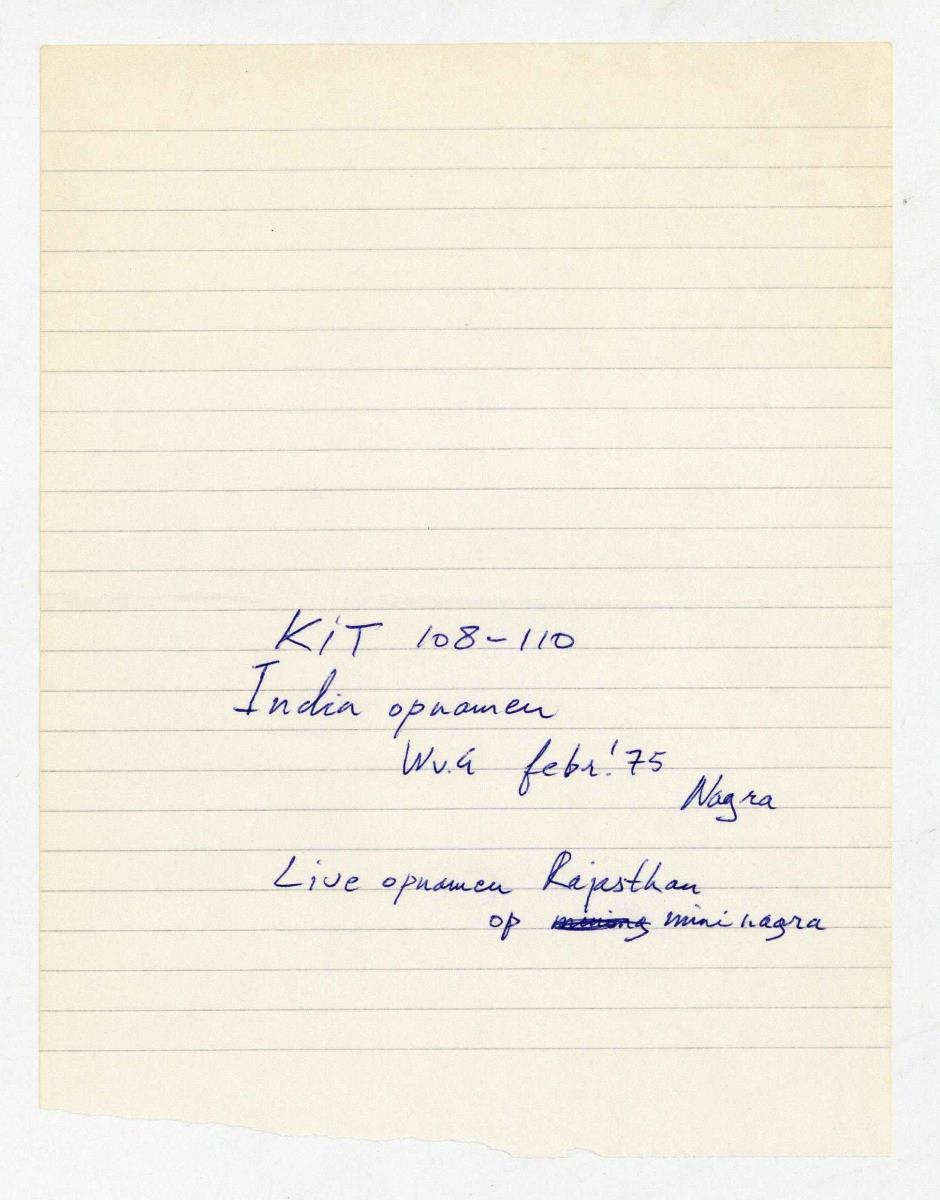 KiT 108-110
India opnamen
Wv.G febr.'75
Nagra
Live opnamen Rajasthan
op mininagra